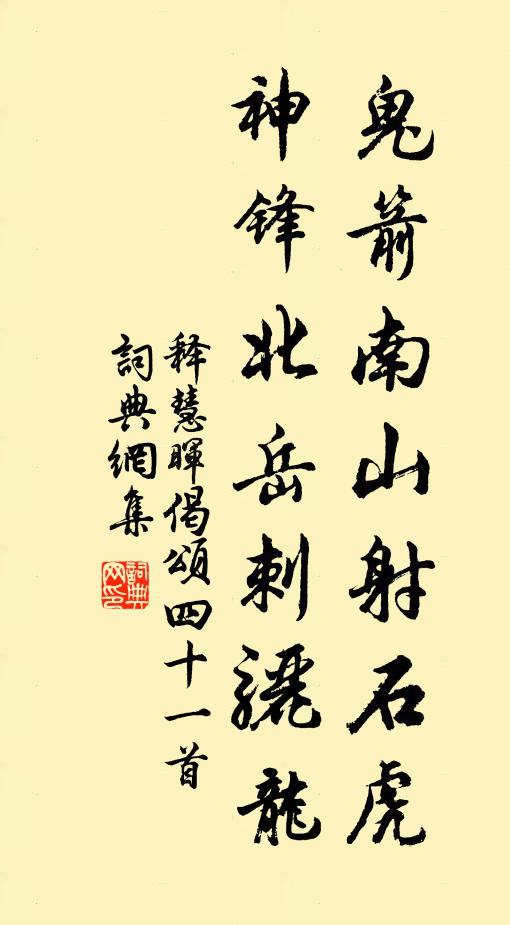 鬼箭南山射石虎
神鋒北岳刺驪龍
释慧暉偈頌四十一首
詞典網集
詞典网印